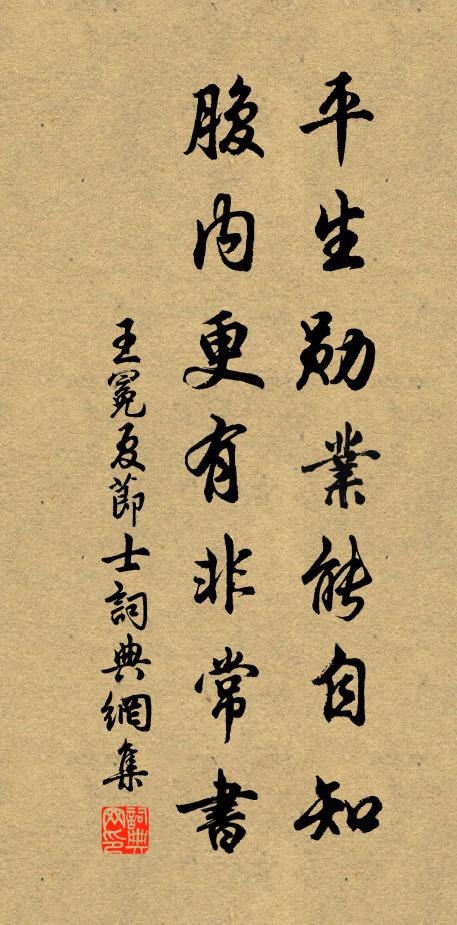 平生勛業能自知
腹内更有非常書
王冕夏節士詞典網集
詞典网印